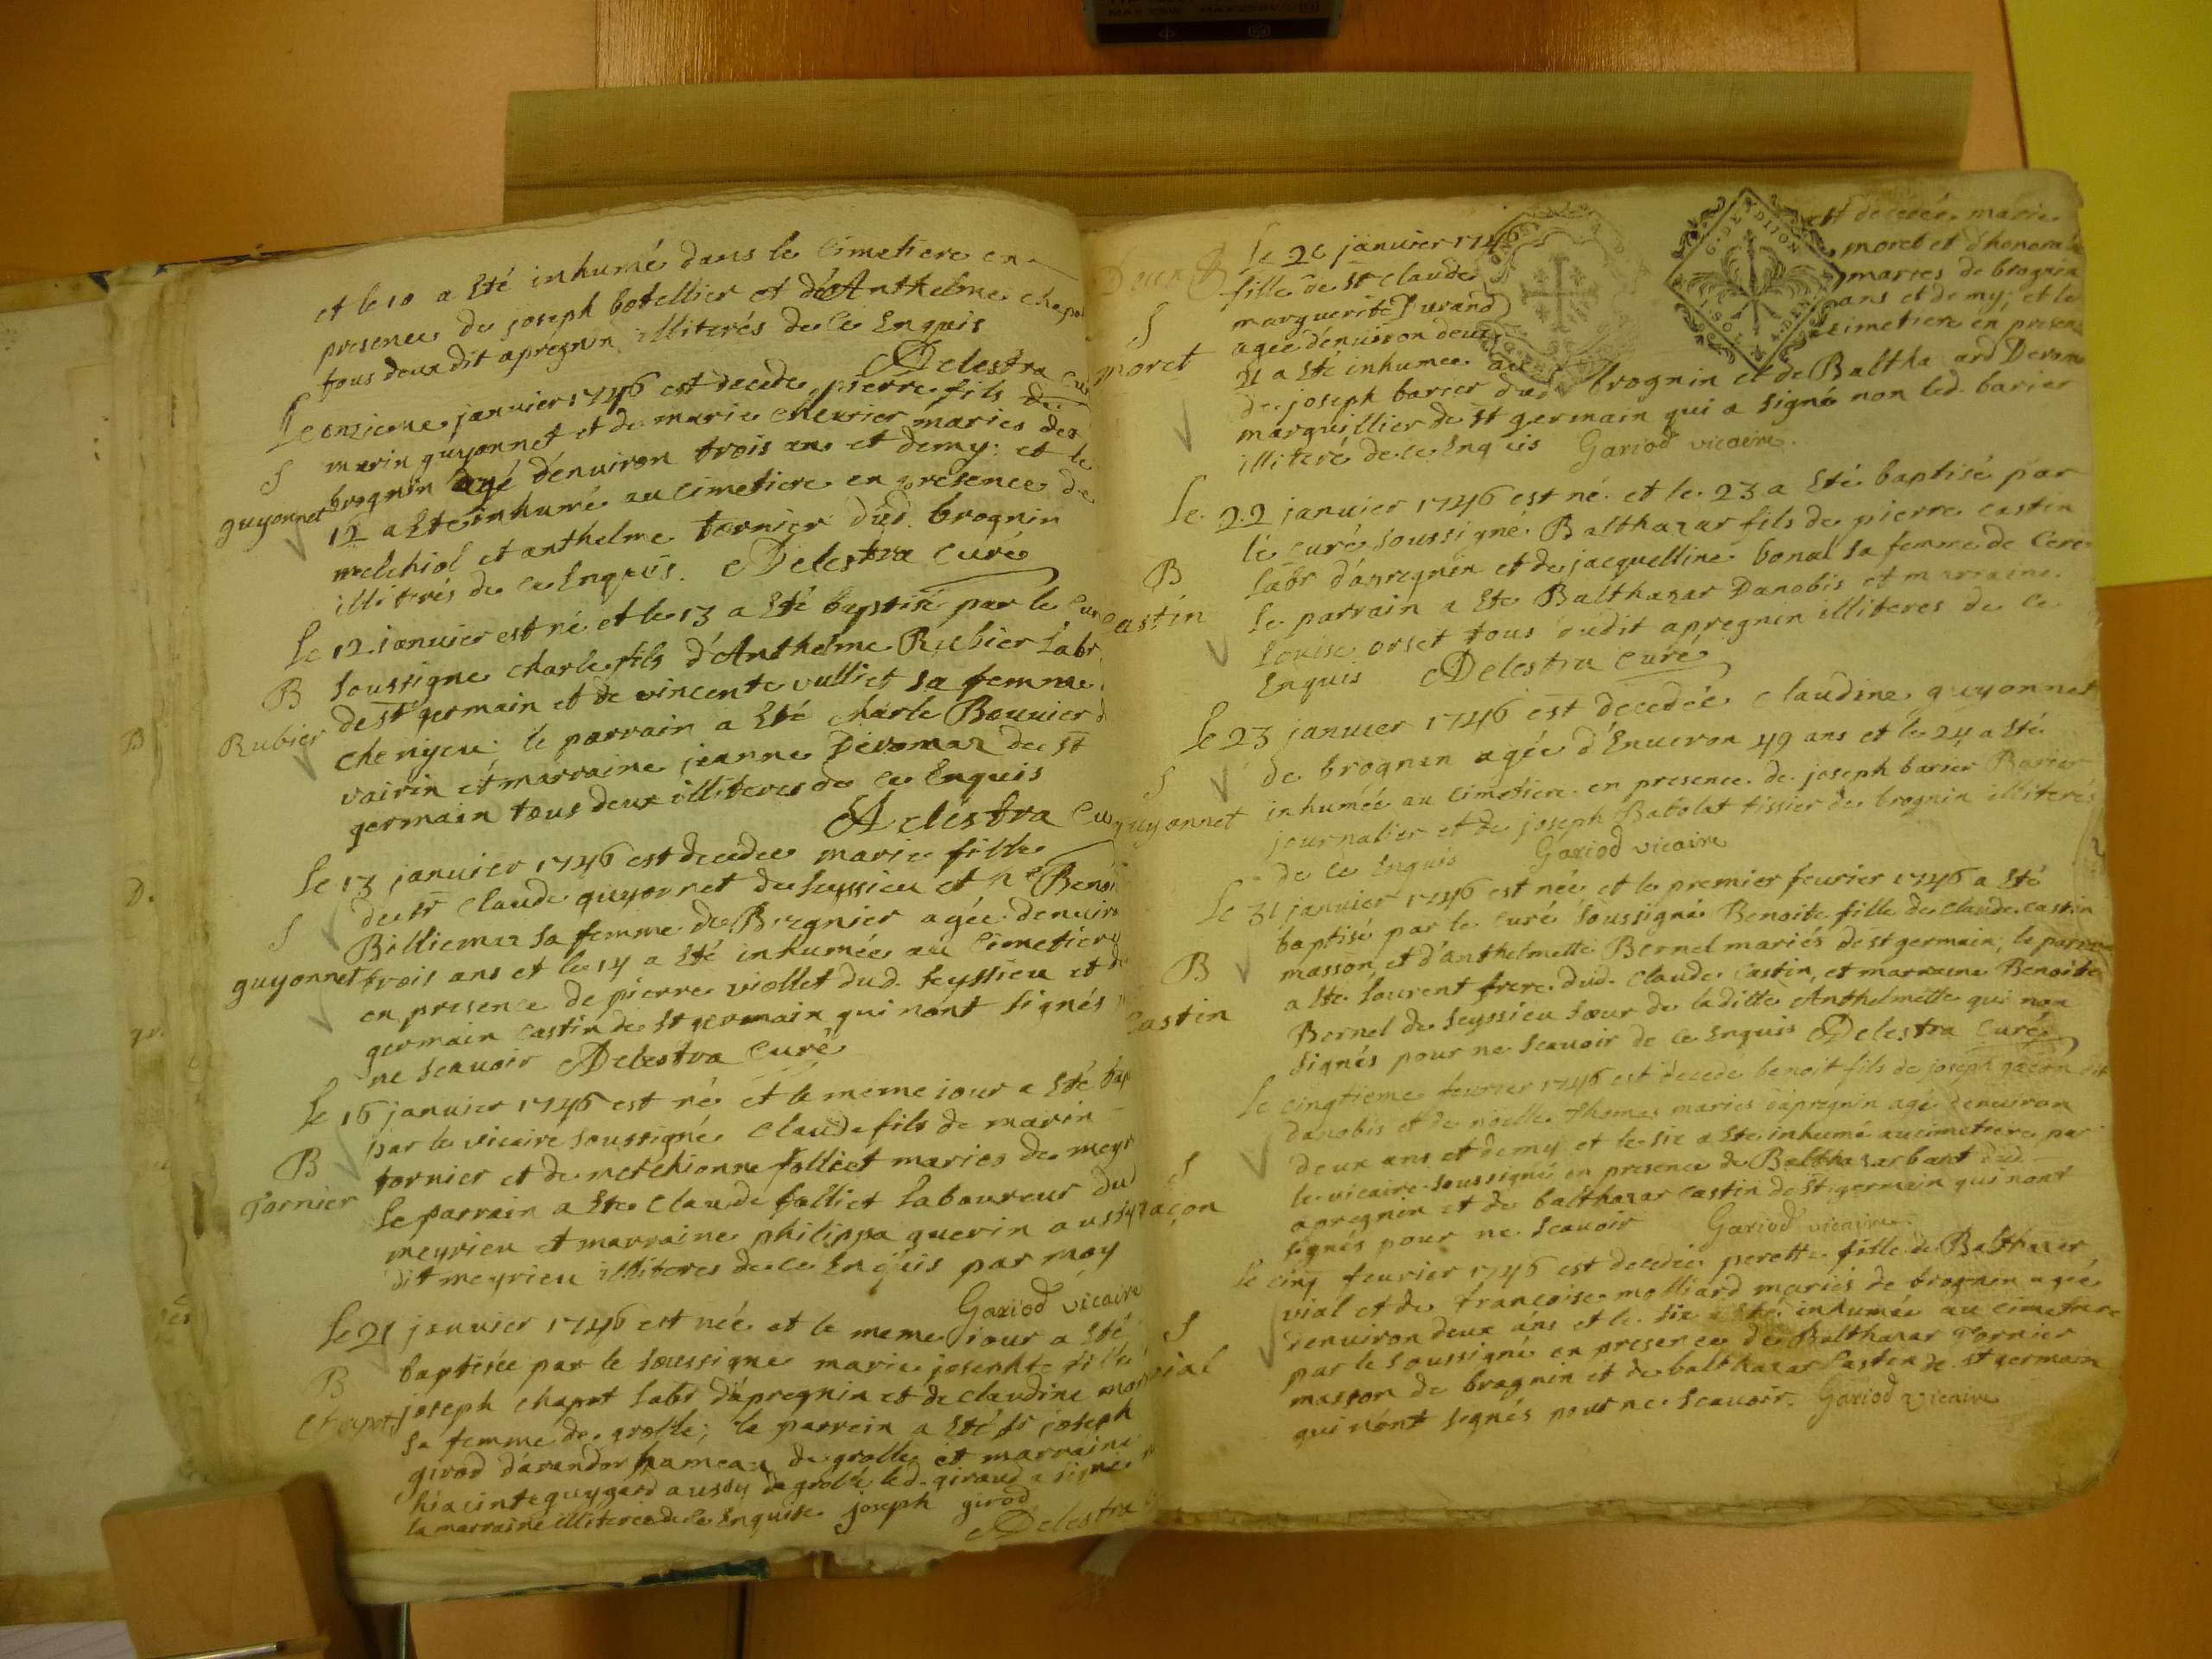 et le 10 a Eté inhumé dans le Cimetiere en
presence de joseph botellier et d'Anthelme chapot
tous deux dit apregnin illiterés de ce Enquis
Delestra Curé
Le onzieme janvier 1746 est decede pierre fils de
S
marin guyonnet et de marie chevrier mariés de
guyonnet
brognin agé d'environ trois ans et demy; et le
12 a Eté inhumé au cimetiere en presence de
melchiol et anthelme tornier dud. brognin
illiterés de ce Enquis. Delestra Curé
Le 12 janvier est né et le 13 a Eté baptisé par le Curé
B
Soussigné charle fils d'Anthelme Rubier Labr
Rubier
de st germain et de vincente vulliet sa femme
le parrain a Eté charle Bouvier
vairin et marraine jeanne Devomaz de st
germain tous deux illiteres de ce Enquis
Delestra Cu
Le 13 janvier 1746 est decedee marie fille
S
de sr claude guyonnet de seyssieu et
Billiemaz sa femme de Bregnier agée denviron
guyonnet
trois ans et le 14 a Eté inhumée au Cimetiere
en presence de pierre viollet dud. seyssieu et de
germain Castin de st germain qui nont signés
ne scavoir Delestra Curé
Le 16 janvier 1746 est né et le meme jour a Eté bap
B
par le vicaire soussigné Claude fils de marin
Tornier
tornier et de melchionne folliet maries de meyr
le parrain a Ete Claude folliet laboureur dud
meyrieu et marraine philippa guerin aussy
dit meyrieu illiteres de ce Enquis par moy
Gariod vicaire
Le 21 janvier 1746 est née et le meme jour a Eté
B
baptisée par le soussigne marie josephte fille
Chapot
joseph chapot labr d'apregnin et de claudine
sa femme de grolle; le parrein a Eté sr joseph
girod d'arandon hameau de grolle et marraine
hiacinte guygard aussy de grolle led. giraud a signé
la marraine illiterée de ce Enquise joseph girod
Delestra
Le 20 janvier 1746 est decedée marie
S
fille de sr Claude moret et d'honorable
moret
marguerite Durand maries de brognin
agée denviron deux ans et demy; et le
21 a Eté inhumee au cimetiere en presence
de joseph barier dud brognin et de Balthazard
marguillier de st germain qui a signé non led. barier
illiteré de ce Enquis Gariod vicaire.
Le 22 janvier 1746 est né et le 23 a Eté baptisé par
le curé soussigné Balthazar fils de pierre castin
B
labr d'apregnin et de jacquelline bonal sa femme de Cere
Castin
le parrain a Ete Balthazar Danobis et marraine
Louise orset tous dudit apregnin illiteres de ce
Enquis Delestra Curé
Le 23 janvier 1746 est decedée Claudine guyonnet
S
de brognin agée d'Environ 49 ans et le 24 a Eté
guyonnet
inhumée au Cimetiere en presence de joseph barier
journalier et de joseph Babolat tissier de brognin illiterés
de ce Enquis Gariod vicaire
Le 31 janvier 1746 est née et le premier fevrier 1746 a Eté
baptisé par le curé soussigné Benoite fille de Claude castin
B
masson et d'anthelmette Bernel mariés de st germain; le parrain
Castin
a Ete Laurent frere dud. Claude Castin, et marraine Benoite
Bernel de Seyssieu sœur de laditte Anthelmette qui non
signés pour ne scavoir de ce Enquis Delestra Curé
Le cinqtieme fevrier 1746 est decede benoit fils de joseph gaçon dit
danobis et de noelle thomas maries d'apregnin agé denviron
deux ans et demy et le six a Ete inhumé au cimetiere par
S
le vicaire soussigné en presence de Balthazar bart dud
gaçon
apregnin et de balthazar castin de st germain qui nont
signés pour ne scavoir Gariod vicaire.
Le cinq fevrier 1746 est decedée perette fille de Balthazar
vial et de francoise molliard mariés de brognin agée
S
denviron deux ans et le six a Eté inhumée au cimetiere
vial
par le soussigné en presence de Balthazar Tornier
masson de brognin et de balthazar Castin de st germain
qui nont signés pour ne scavoir. Gariod vicaire
G. DE DIJON